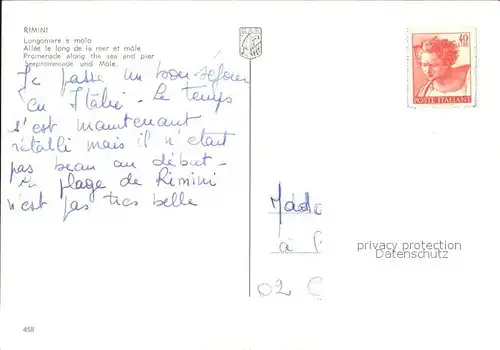 RIMINI
Lungomare e molo
Allée le long de la mer et môle
Promenade along the sea and pier
Seepromenade und Mole
Je passe un bon séjour
en Italie - Le temps
s'est maintenant
rétabli mais il n'etait
pas beau au début -
La plage de Rimini
n'est pas très belle
40
POSTE ITALIANE
à
privacy protection
Datenschutz
02
458